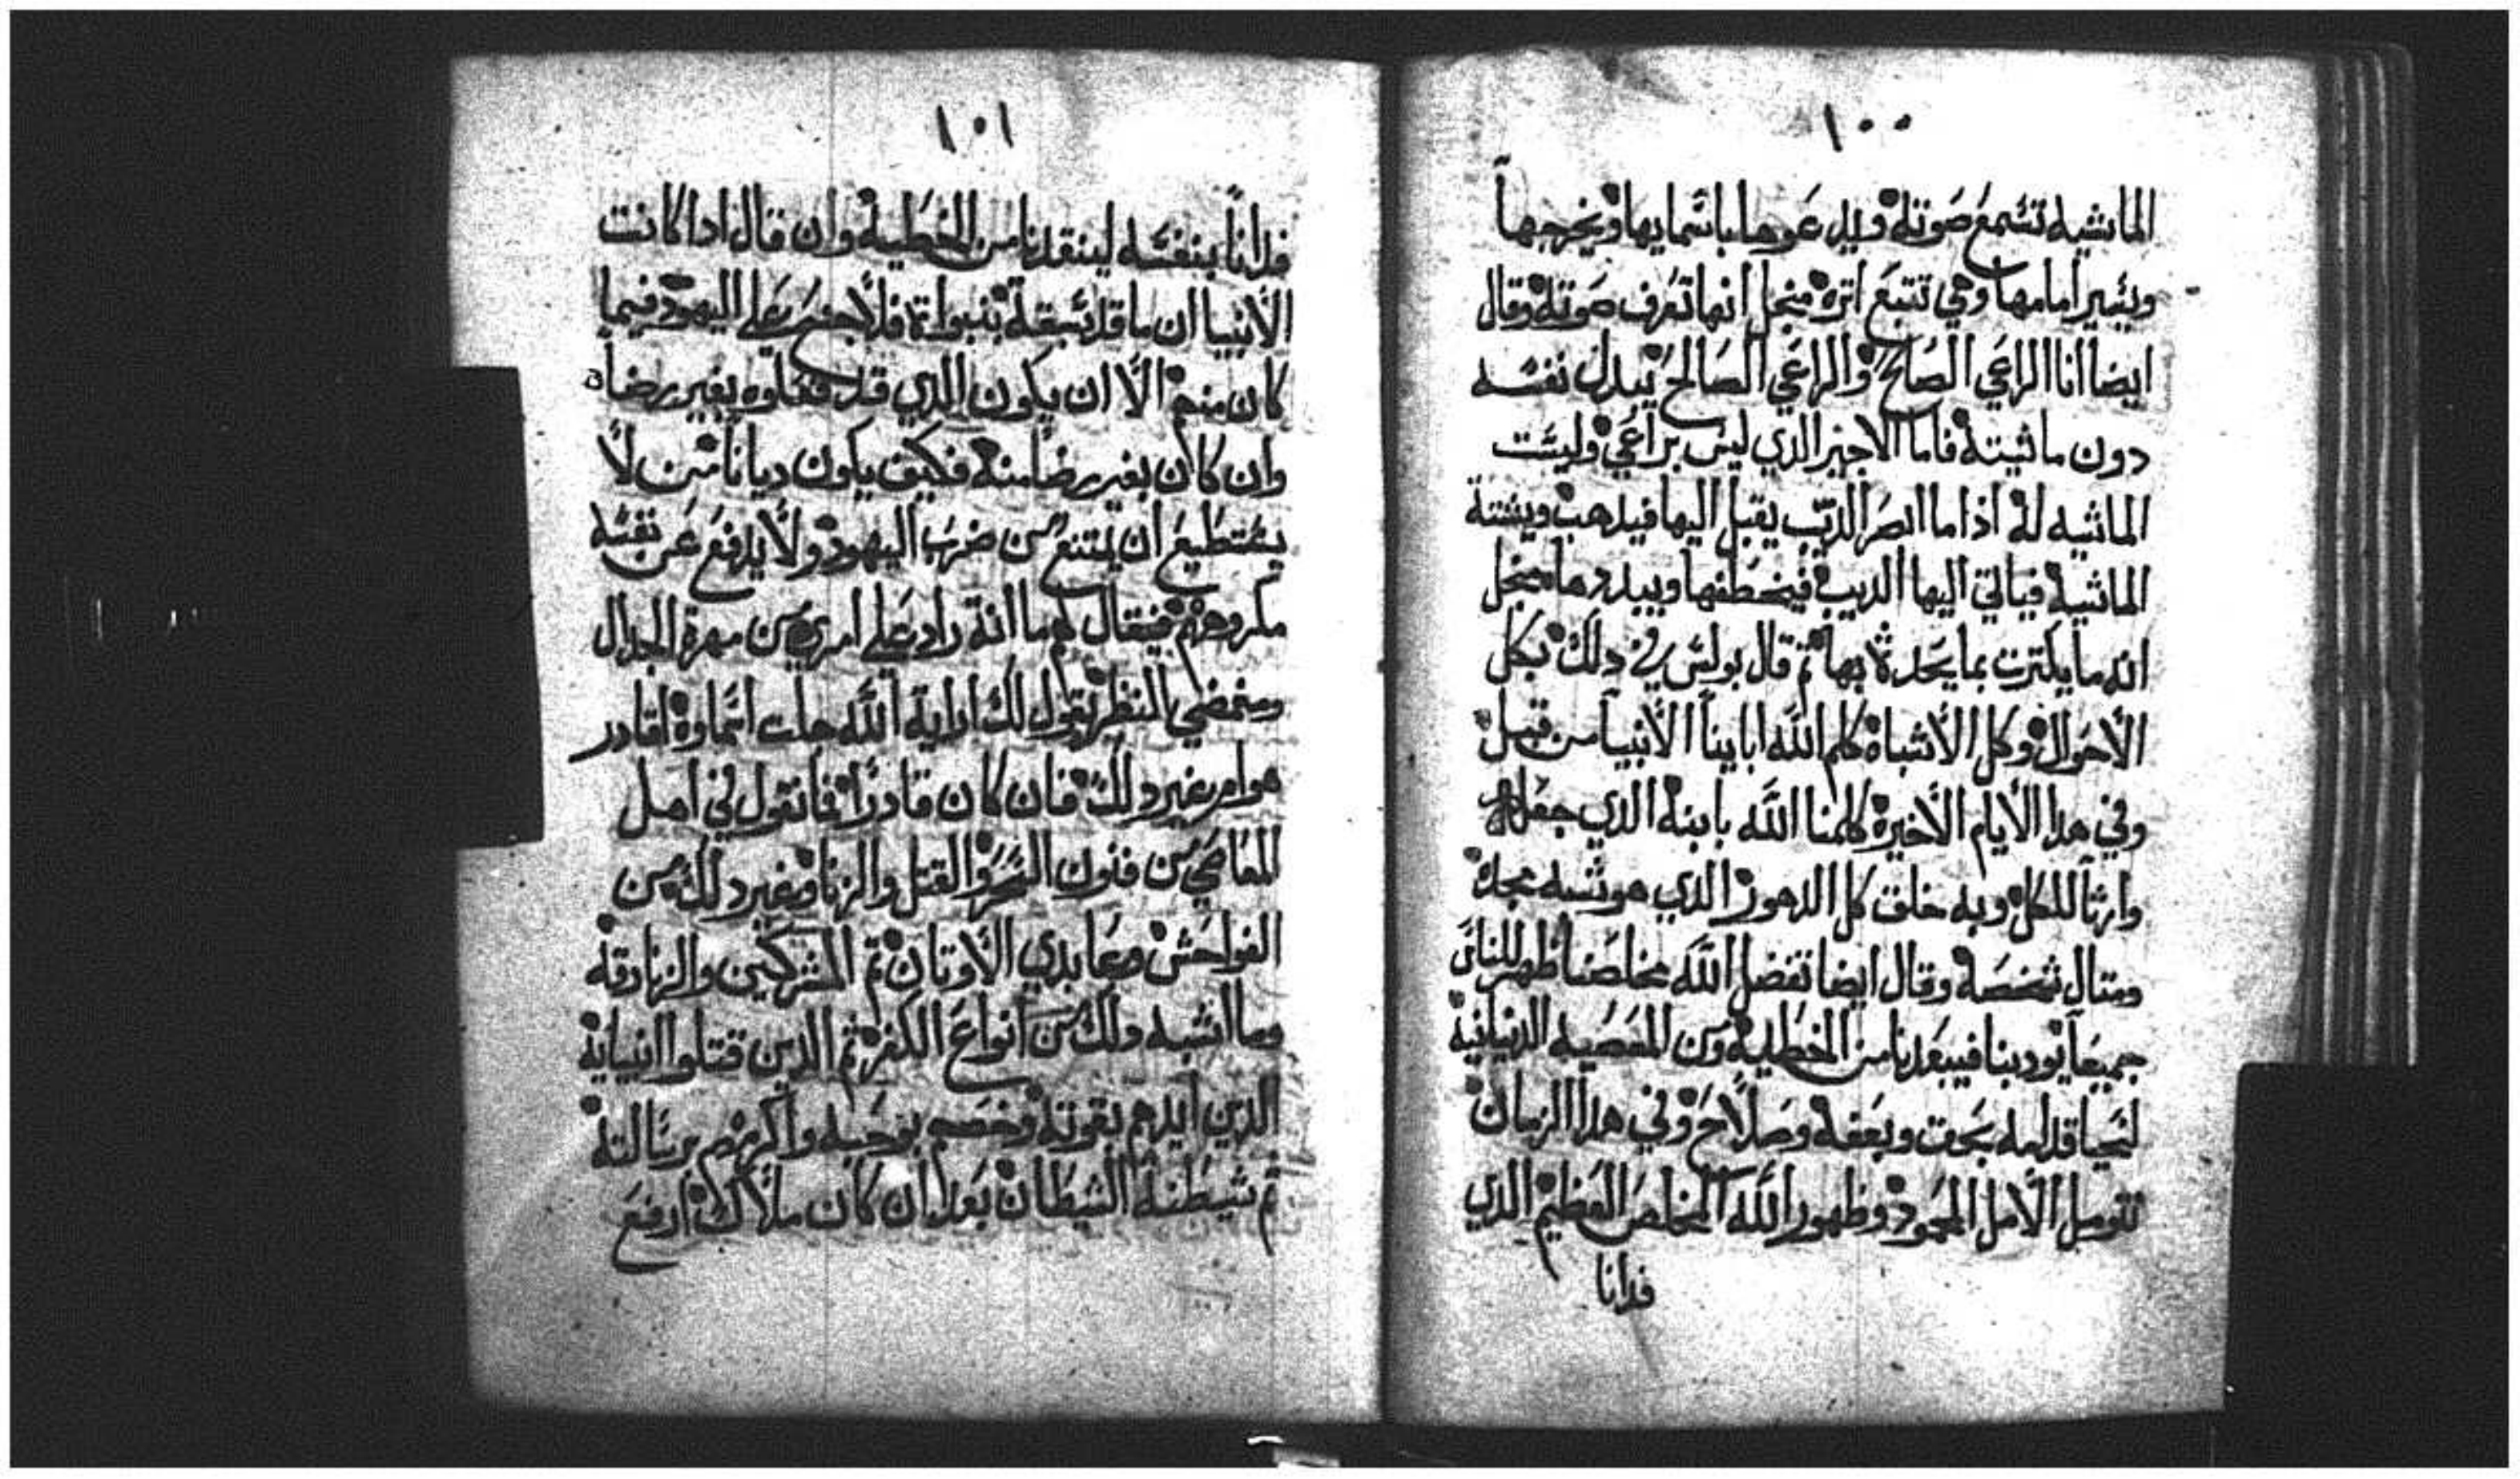 ١٠٠
الماشيه تسمع صوته ويدعوها باسمايها ويخرجها
ويسير امامها وهي تتبع اتره منجل انها تعرف صوته وقال
ايضا انا الراعي الصالح والراعي الصالح يبدل نفسه
دون ماشيته فاما الاجير الدي ليس براعي وليست
الماشيه له اذا ما ابصر الديب يقبل اليها فيدهب ويشتة
الماشيه فياتي اليها الديب فيخطفها ويبددها منجل
انه ما يكترت بما يحدث بها ثم قال بولس في دلك بكل
الاحوال وكل الاشباه كلم الله اباينا الانبيا من قبل
وفي هدا الأيام الأخيرة كلمنا الله بابنه الدي جعله
وارتا للكل وبه خلق كل الدهور الدي هو شبه مجده
ومتال شخصه وقال ايضا تفضل الله مخلصنا ظهر للناس
جميعا يودبنا فيبعدنا من الخطيه ومن المعصيه الدنيانيه
لنحيا قدامه بحق وبعفه وصلاح وفي هدا الزمان
نتوصل الأمل المجود وظهور الله المخلص العظيم الدي
فدانا
١٠١
فدانا بنفسه لينقدنا من الخطية وان قال ادا كانت
الأنبيا ان ما قد سبقة بنبواته فلا جرم على اليهود فيما
كان منهم الا ان يكون الدي قد فعلوه بغير رضاه
وان كان بغير رضا منه فكيف يكون ديانا من لا
يستطيع ان يمتنع من ضرب اليهود ولا يدفع عن نفسه
مكروههم فيقال لهما انه راد على امري من مهرة الجدال
النظر يقول لك اراية الله جلت اسماوه اقادر
هو ام غير دلك فان كان قادرا فما نقول في اهل
المعاصي من فنون السحر والقتل والزنا وغير دلك من
الفواحش وعابدي الأوتان ثم المشركين والزنادقه
وما اشبه دلك من انواع الكفر ثم الدين قتلوا انبيايه
الدين ايدهم بقوته وخصهم بوحيه واكرمهم برسالته
ثم شيطنة الشيطان بعد ان كان ملاك ارفع